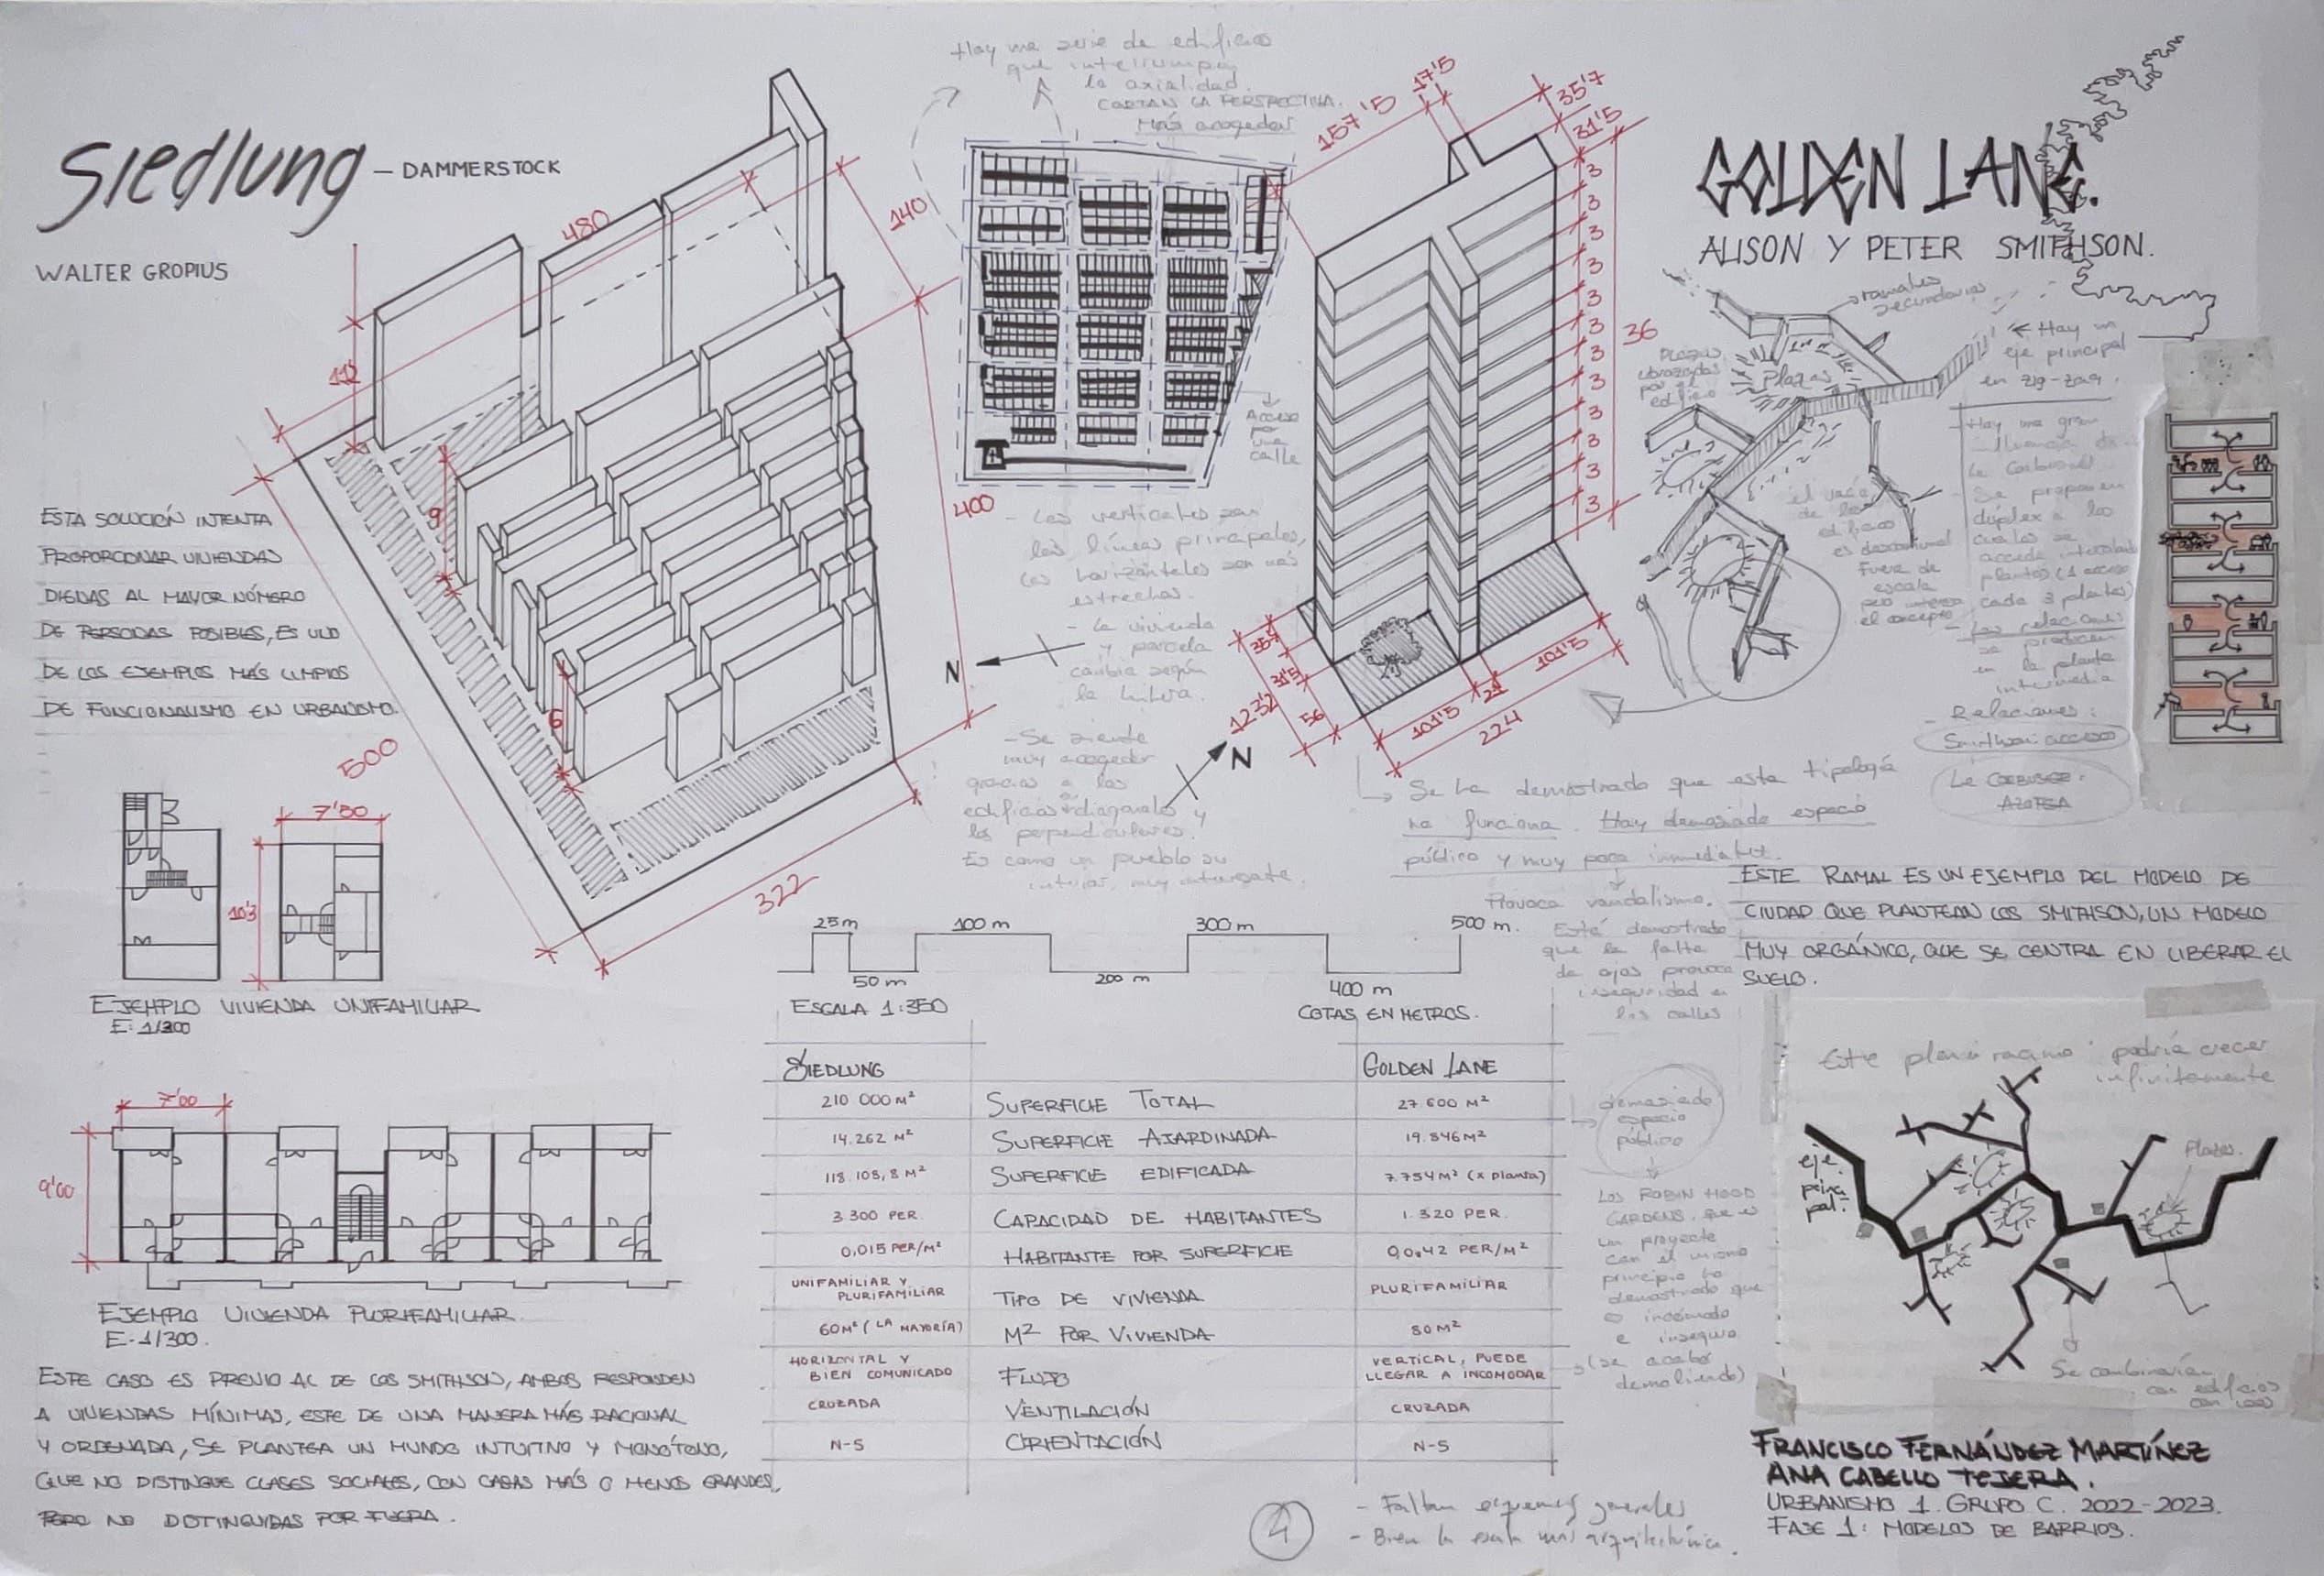 Siedlung – DAMMERSTOCK
WALTER GROPIUS
ESTA SOLUCIÓN INTENTA
PROPORCIONAR VIVIENDAS
DIGNAS AL MAYOR NÚMERO
DE PERSONAS POSIBLES, ES UNO
DE LOS EJEMPLOS MÁS LIMPIOS
DE FUNCIONALISMO EN URBANISMO.
480
140
112
9
6
400
500
322
N
7'50
10'3
EJEMPLO VIVIENDA UNIFAMILIAR
E: 1/300
7'00
9'00
EJEMPLO VIVIENDA PLURIFAMILIAR.
E-1/300.
ESTE CASO ES PREVIO AL DE LOS SMITHSON, AMBOS RESPONDEN
A VIVIENDAS MÍNIMAS, ESTE DE UNA MANERA MÁS RACIONAL
Y ORDENADA, SE PLANTEA UN MUNDO INTUITIVO Y MONÓTONO,
QUE NO DISTINGUE CLASES SOCIALES, CON CASAS MÁS O MENOS GRANDES,
PERO NO DISTINGUIDAS POR FUERA.
Hay una serie de edificios
que interrumpen
la axialidad.
CORTAN LA PERSPECTIVA.
Más acogedor
Acceso
por
una
calle
- Las verticales son
las líneas principales,
las horizontales son más
estrechas.
- La vivienda
y parcela
cambia según
la hilera.
- Se siente
muy acogedor
gracias a los
edificios diagonales y
los perpendiculares.
Es como un pueblo su
interior, muy interesante.
157'5
17'5
35'7
31'5
3
3
3
3
3
3
3
3
3
3
3
3
36
35'7
31'5
123'2
56
101'5
21
101'5
224
N
GOLDEN LANE.
ALISON Y PETER SMITHSON.
ramales
secundarios
Plazas
abrazadas
por el
edificio
Plazas
← Hay un
eje principal
en zig-zag.
- Hay una gran
influencia de
Le Corbusier
- Se proponen
dúplex a los
cuales se
accede intercalando
plantas (1 acceso
cada 3 plantas)
- Las relaciones
se producen
en la planta
intermedia
- Relaciones:
Smithson: acceso
Le CORBUSIER:
AZOTEA
de los
edificios
es descomunal
Fuera de
escala
pero interesa
el concepto
Se ha demostrado que esta tipología
no funciona. Hay demasiado espacio
público y muy poca inmediatez.
Provoca vandalismo.
Está demostrado
que la falta
de ojos provoca
inseguridad en
las calles
ESTE RAMAL ES UN EJEMPLO DEL MODELO DE
CIUDAD QUE PLANTEAN LOS SMITHSON, UN MODELO
MUY ORGÁNICO, QUE SE CENTRA EN LIBERAR EL
SUELO.
25m
50 m
100 m
200 m
300 m
400 m
500 m.
ESCALA 1:350
COTAS EN METROS.
SIEDLUNG
GOLDEN LANE
210 000 M²
SUPERFICIE TOTAL
27.600 M²
14.262 M²
SUPERFICIE AJARDINADA
19.846 M²
118.108,8 M²
SUPERFICIE EDIFICADA
7.754 M² (x planta)
3 300 PER.
CAPACIDAD DE HABITANTES
1.320 PER.
0,015 PER/M²
HABITANTE POR SUPERFICIE
0,042 PER/M²
UNIFAMILIAR Y
PLURIFAMILIAR
TIPO DE VIVIENDA
PLURIFAMILIAR
60M² (LA MAYORÍA)
M² POR VIVIENDA
80 M²
HORIZONTAL Y
BIEN COMUNICADO
FLUJO
VERTICAL, PUEDE
LLEGAR A INCOMODAR
CRUZADA
VENTILACIÓN
CRUZADA
N-S
ORIENTACIÓN
N-S
demasiado
espacio
público
LOS ROBIN HOOD
GARDENS, que es
un proyecto
con el mismo
principio ha
demostrado que
es incómodo
e inseguro
(se acabó
demoliendo)
Este plan racimo podría crecer
infinitamente
eje
princi-
pal.
Plazas.
Se combinarían
con edificios
FRANCISCO FERNÁNDEZ MARTÍNEZ
ANA CABELLO TEJERA.
URBANISMO 1. GRUPO C. 2022-2023.
FASE 1: MODELOS DE BARRIOS.
4
- Faltan esquemas generales
- Bien la escala más arquitectónica.